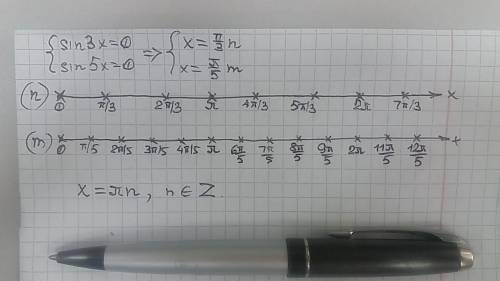 { sin3x=0 ⇒ { x = π/3 n
{ sin5x=0 { x = π/5 m
(n) 0 π/3 2π/3 π 4π/3 5π/3 2π 7π/3 x
(m) 0 π/5 2π/5 3π/5 4π/5 π 6π/5 7π/5 8π/5 9π/5 2π 11π/5 12π/5 x
x = πn, n ∈ Z.